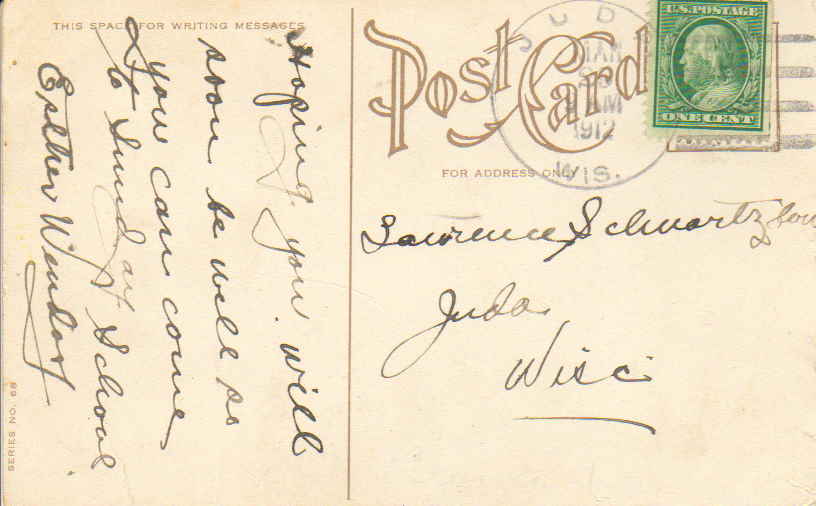 THIS SPACE FOR WRITING MESSAGES
Hoping you will
soon be well so
you can come
to Sunday School
Esther Wendorf
SERIES NO. 68
Post Card
FOR ADDRESS ONLY
JUD
JAN
AM
1912
WIS.
U.S. POSTAGE
ONE CENT
Lawrence
Juda
Wisc